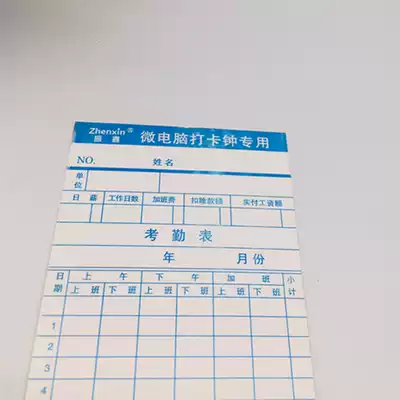 Zhenxin® 微电脑打卡钟专用
振鑫
NO. 姓名
单位
日薪 工作日数 加班费 扣除款项 实付工资额
考勤表
年 月份
日期 上午 下午 加班 小计
上班 下班 上班 下班 上班 下班
1
2
3
4